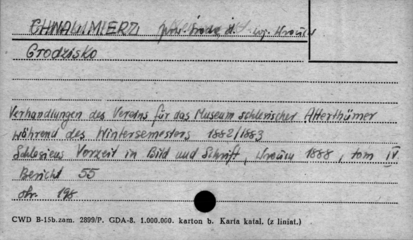 CHWALIMIERZ pow. Środa Śl. woj. Wrocław
Grodzisko
Verhandlungen des Vereins für das Museum schlesischer Alterthümer
während des Wintersemesters 1882/1883
Schlesiens Vorzeit in Bild und Schrift, Wrocław 1888, tom IV
Bericht 55
str. 198
CWD B-15b. zam. 2899/P. GDA-8. 1.000.000. karton b. Karta katal. (z liniat.)